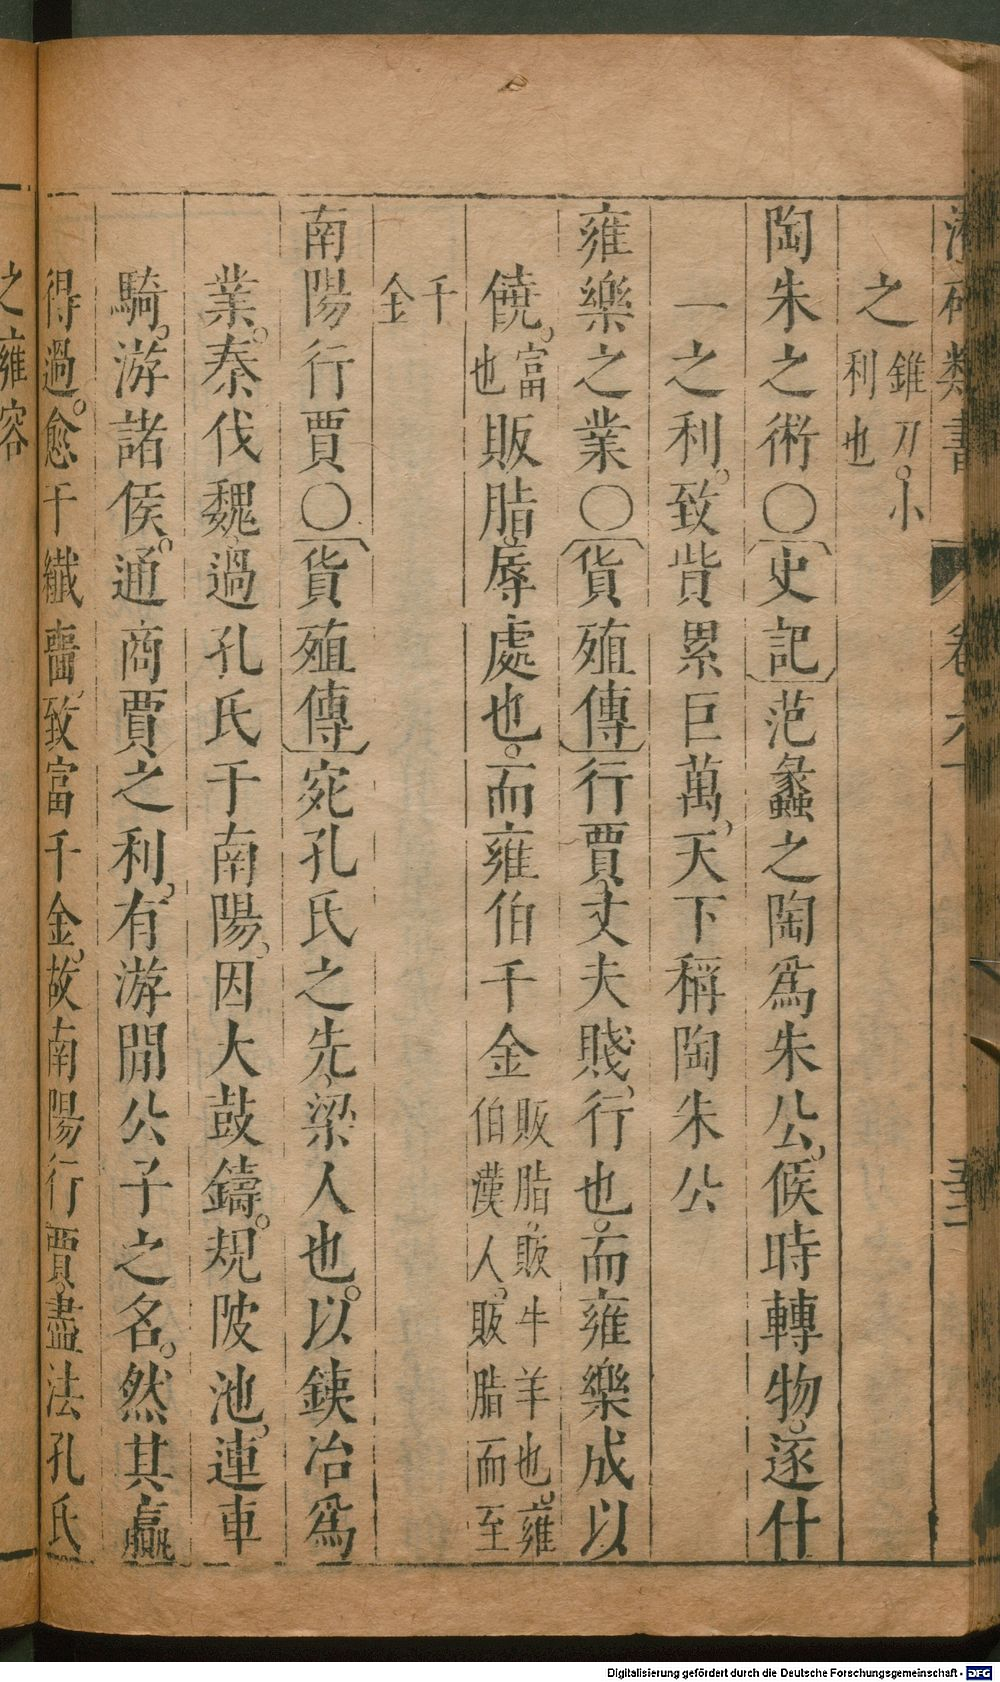 類書 卷六
之 錐刀。小利也
陶朱之術〇史記范蠡之陶爲朱公，候時轉物。逐什
一之利。致貲累巨萬，天下稱陶朱公
雍樂之業〇貨殖傳行賈，丈夫賤，行也。而雍樂成以
饒，富也 販脂，辱處也。而雍伯千金 販脂，販牛羊也。雍伯漢人。販脂而至
千金
南陽行賈〇貨殖傳宛孔氏之先，梁人也。以鐵冶爲
業。秦伐魏，過孔氏于南陽，因大鼓鑄。規陂池，連車
騎，游諸侯。通商賈之利，有游閒公子之名。然其贏
得過。愈于纖嗇，致富千金，故南陽行賈，盡法孔氏
之雍容
Digitalisierung gefördert durch die Deutsche Forschungsgemeinschaft - DFG